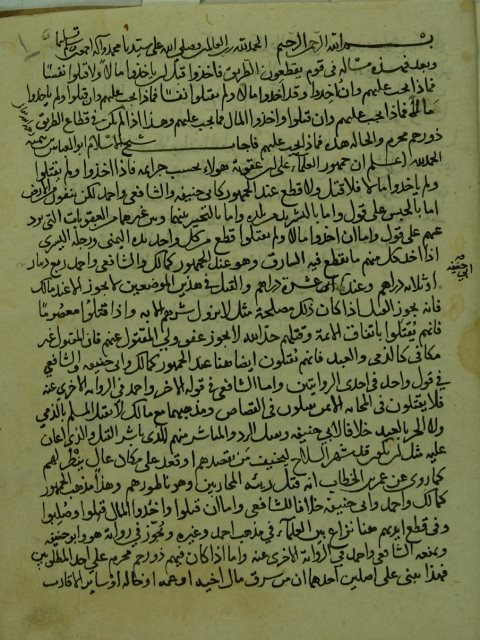 بسم الله الرحمن الرحيم الحمد لله رب العالمين وصلى الله على سيدنا محمد وآله اجمعين وسلم تسليما
وبعد فهذه مساله في قوم يقطعون الطريق فاخذوا قبل ان ياخذوا مالا ولا قتلوا نفسا
فماذا يجب عليهم وان اخذوا وقد اخذوا مالا ولم يقتلوا نفسا فماذا يجب عليهم وان قتلوا ولم ياخذوا
مالا فماذا يجب عليهم وان قتلوا واخذوا المال فما يجب عليهم وهذا اذا لم يكن في قطاع الطريق
ذو رحم محرم والحاله هذه فماذا يجب عليهم فاجاب شيخ الاسلام ابو العباس بن تيميه
الحمد لله اعلم ان جمهور العلماء على ان عقوبة هولاء بحسب جرايمهم فاذا اخذوا ولم يقتلوا
ولم ياخذوا مالا فلا قتل ولا قطع عند الجمهور كابي حنيفه والشافعي واحمد لكن ينفون من الارض
اما بالحبس على قول واما بالتشريد من بلده واما بالتخيير بينهما وبين غيرهما من العقوبات التي تردعهم
على قول واما ان اخذوا مالا ولم يقتلوا قطع من كل واحد يده اليمنى ورجله اليسرى
اذا اخذ كل منهم ما يقطع فيه السارق وهو عند الجمهور كمالك والشافعي واحمد ربع دينار
او ثلاثه دراهم وعند ابي حنيفه عشرة دراهم والقتل في هذين الموضعين لا يجوز الا عند مالك
فانه يجوز القتل اذا كان ذلك مصلحة مثل لا يزول شرهم الا به واذا قتلوا معصوما
فانهم يقتلوا باتفاق الايمة وقتلهم حد الله لا يجوز عفو ولي المقتول عنهم فان المقتول غير
مكافي كالذمي والعبد فانهم يقتلون ايضا هنا عند الجمهور كمالك وابي حنيفه والشافعي
في قول واحمد في احدى الروايتين واما الشافعي في قوله الاخر واحمد في الروايه الاخرى عنه
فلا يقتلون في المحاربه الا بمن يقتلون في القصاص ومذهبهما مع مالك لا يقتل المسلم بالذمي
ولا الحر بالعبد خلافا لابي حنيفه ويقتل الرد والمباشر منهم للذي باشر القتل والذي اعان
عليه مثل ان يكون قد شهر السلاح ليخيف من يقصدهم او قعد على مكان عال ينظر لهم
كما روي عن عمر بن الخطاب انه قتل ربيئه المحاربين وهو ناطورهم وهذا مذهب الجمهور
كمالك واحمد وابي حنيفه خلافا للشافعي واما ان قتلوا واخذوا المال قتلوا وصلبوا
وفي قطع ايديهم هنا نزاع بين العلماء في مذهب احمد وغيره ويجوز في روايه هو وابو حنيفه
ويمنعه الشافعي واحمد في الروايه الاخرى عنه واما اذا كان فيهم ذو رحم محرم على احد المظلومين
فهذا مبني على اصلين احدهما ان من سرق مال اخيه او عمه او خاله او ساير الاقارب